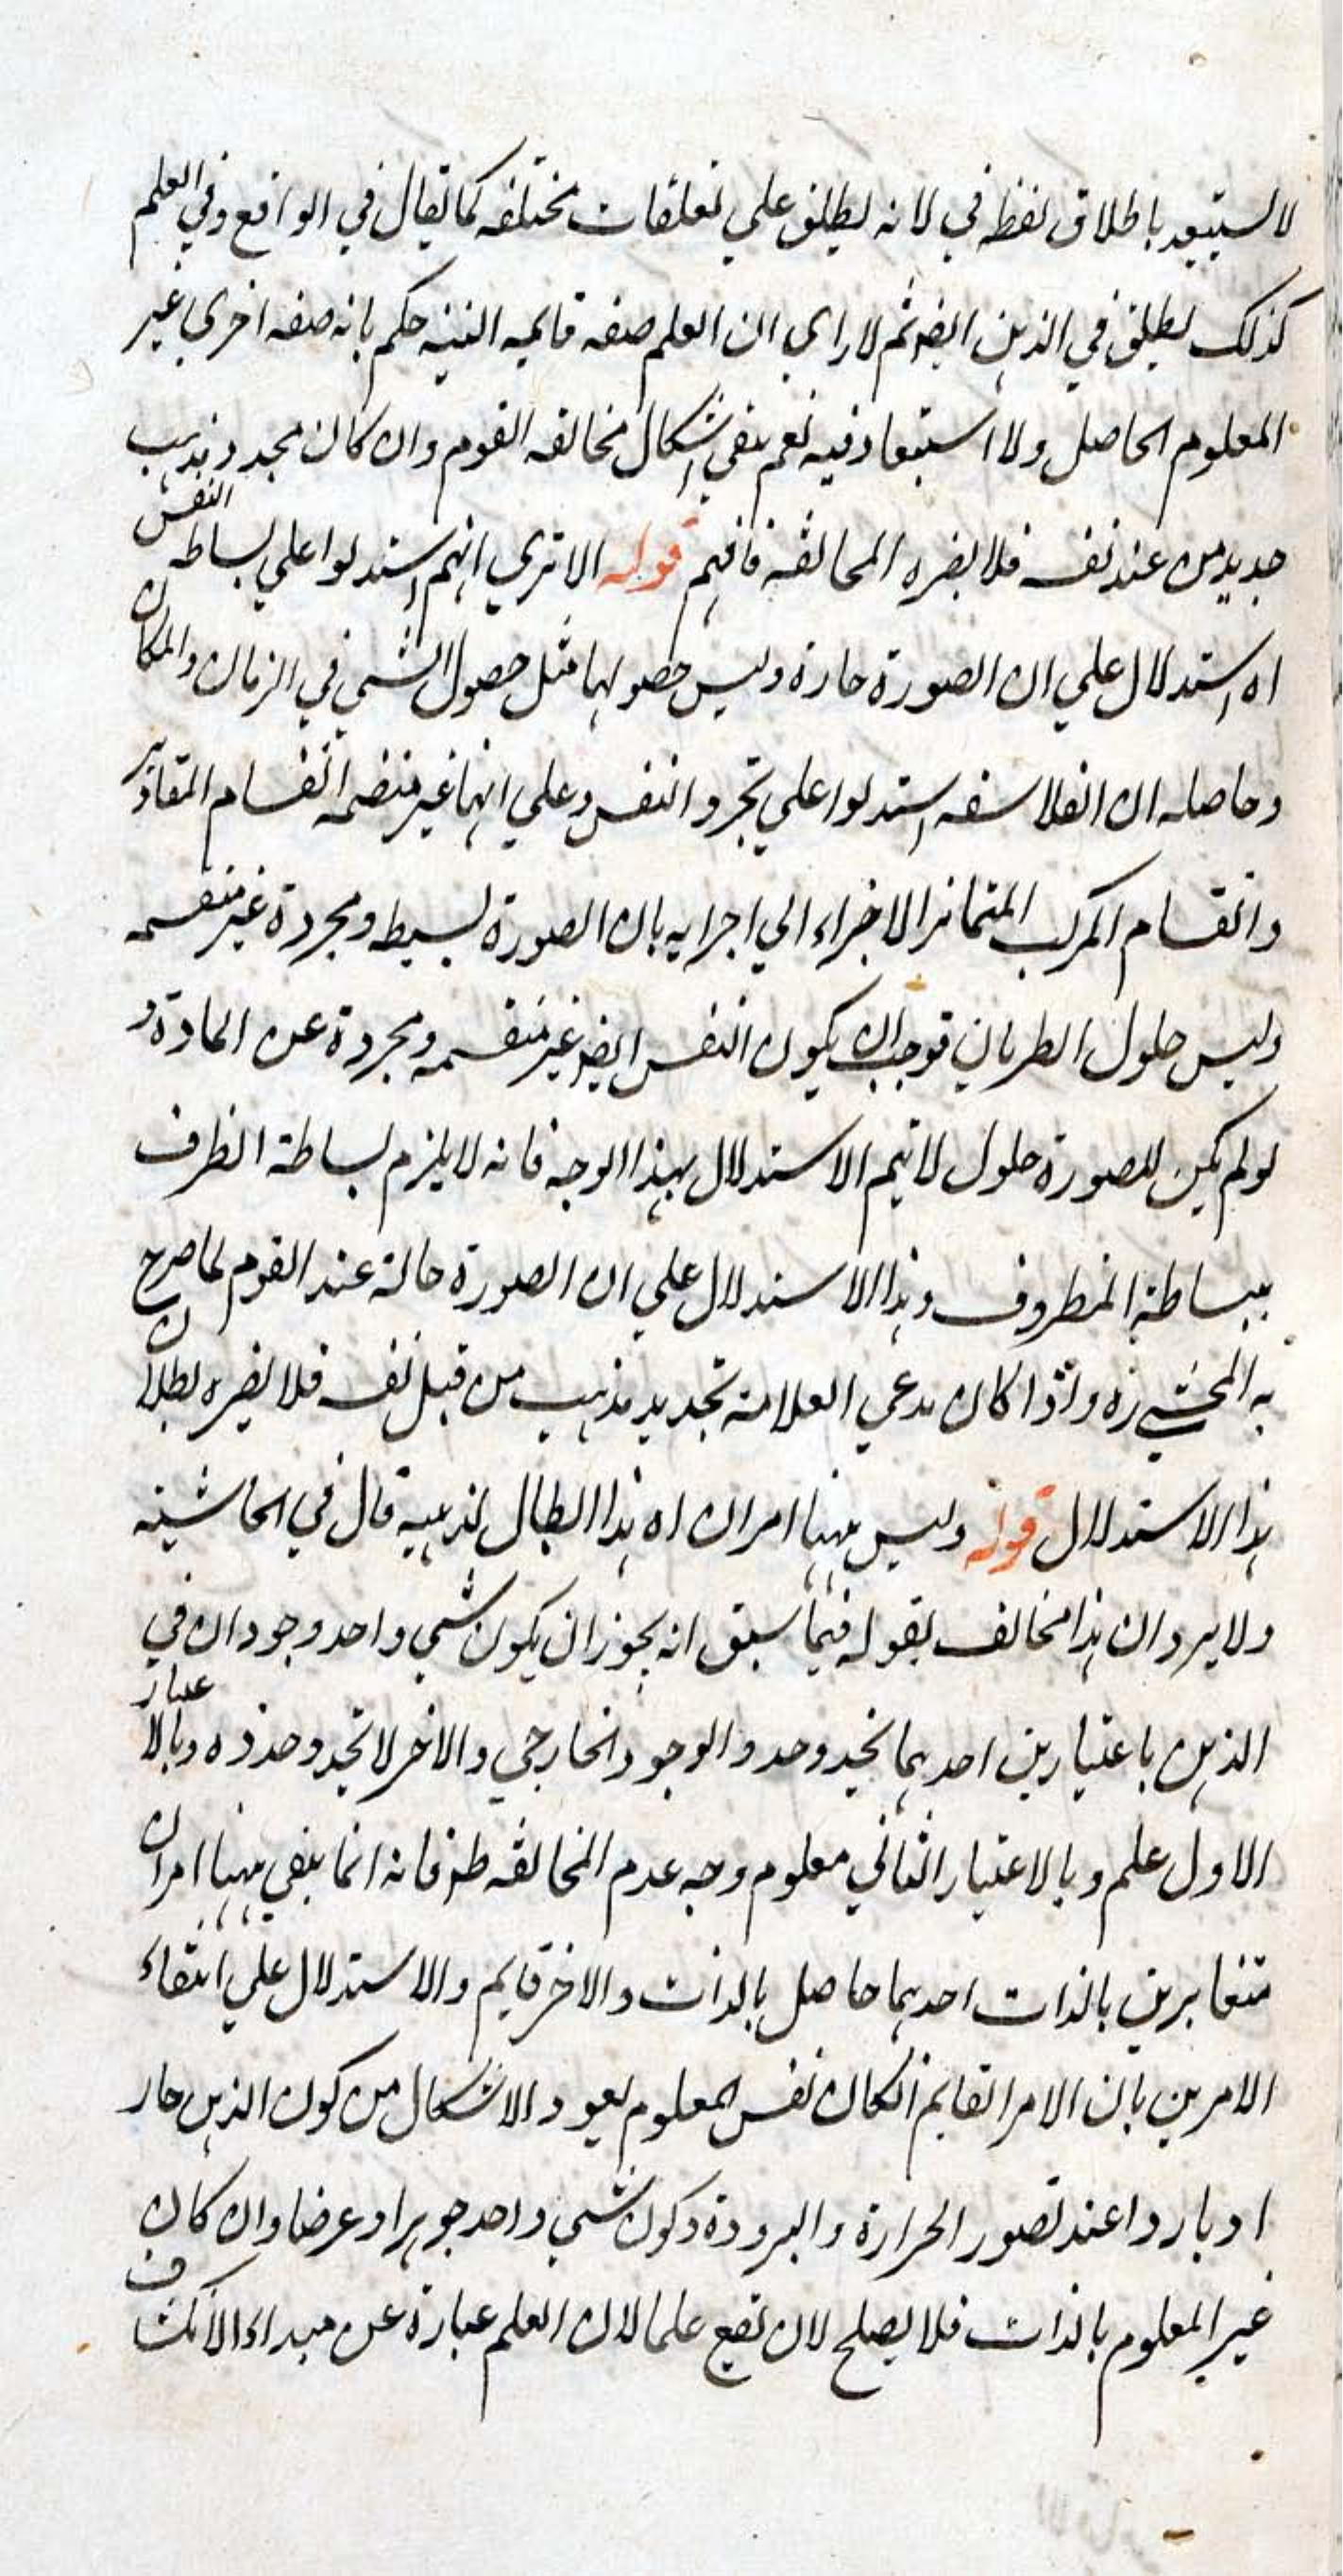 لا يستبعد باطلاق لفظ في لانه يطلق علي تعلقات مختلفه كما يقال في الواقع وفي العلم
كذلك يطلق في الذهن ايضا ثم لا راي ان العلم صفه قايمه حكم بانه صفه اخري غير
المعلوم الحاصل ولا استبعاد فيه نعم بقي اشكال مخالفه القوم وان كان مجدد مذهب
جديد من عند نفسه فلا يضره المخالفه فافهم قوله الا تري انهم استدلوا علي بساطه النفس
اه استدلال علي ان الصورة حارة وليس حصولها مثل حصول الشي في الزمان والمكان
وحاصله ان الفلاسفه استدلوا علي تجرد النفس وعلي انها غير منقسمه انقسام المقادير
وانقسام المركب المتمايز الاجزاء الي اجزايه بان الصورة بسيطه ومجردة غير منقسمه
وليس حلول الطريان فوجب ان يكون النفس ايضا غير منقسمه ومجردة عن المادة و
لو لم يكن للصورة حلول لا يتم الاستدلال بهذا الوجه فانه لا يلزم بساطة الظرف
ببساطة المظروف وهذا الاستدلال علي ان الصورة حالة عند القوم كما صرح
به المحشي ره واذا كان مدعي العلامة تجديد مذهب من قبل نفسه فلا يضره بطلان
هذا الاستدلال قوله وليس ههنا امران اه هذا ابطال لمذهبه قال في الحاشيه
ولا يرد ان هذا مخالف لقوله فيما سبق انه يجوز ان يكون شي واحد وجودان في
الذهن باعتبارين احدهما يحذو حذو الوجود الخارجي والاخر لا يحذو حذوه وبالاعتبار
الاول علم وبالاعتبار الثاني معلوم وجه عدم المخالفه ظ فانه انما ينفي ههنا امران
متغايرين بالذات احدهما حاصل بالذات والاخر قايم والاستدلال علي انتفاء
الامرين بان الامر القايم ان كان نفس المعلوم يعود الاشكال من كون الذهن حار
او باردا عند تصور الحرارة والبرودة وكون شي واحد جوهرا وعرضا وان كان
غير المعلوم بالذات فلا يصلح لان يقع علما لان العلم عبارة عن مبداء الانكشاف